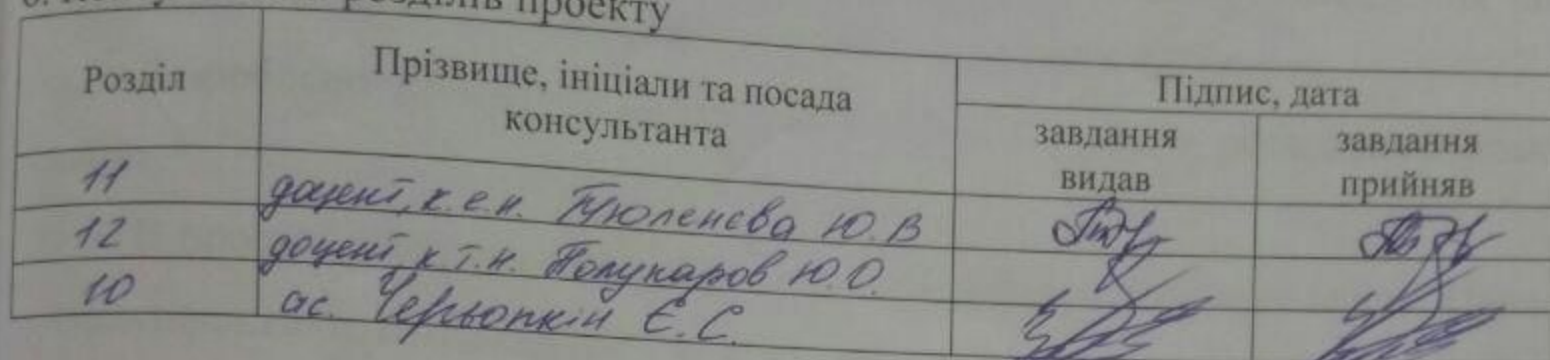 розділів проекту
Розділ
Прізвище, ініціали та посада
консультанта
Підпис, дата
завдання
видав
завдання
прийняв
11
доцент, к.е.н. Тюленєва Ю.В
12
доцент, к.т.н. Полукаров Ю.О.
10
ас. Черьопкін Є.С.